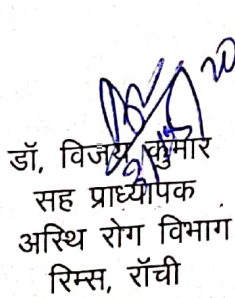 डॉ, विजय कुमार
सह प्राध्यापक
अस्थि रोग विभाग
रिम्स, रॉंची